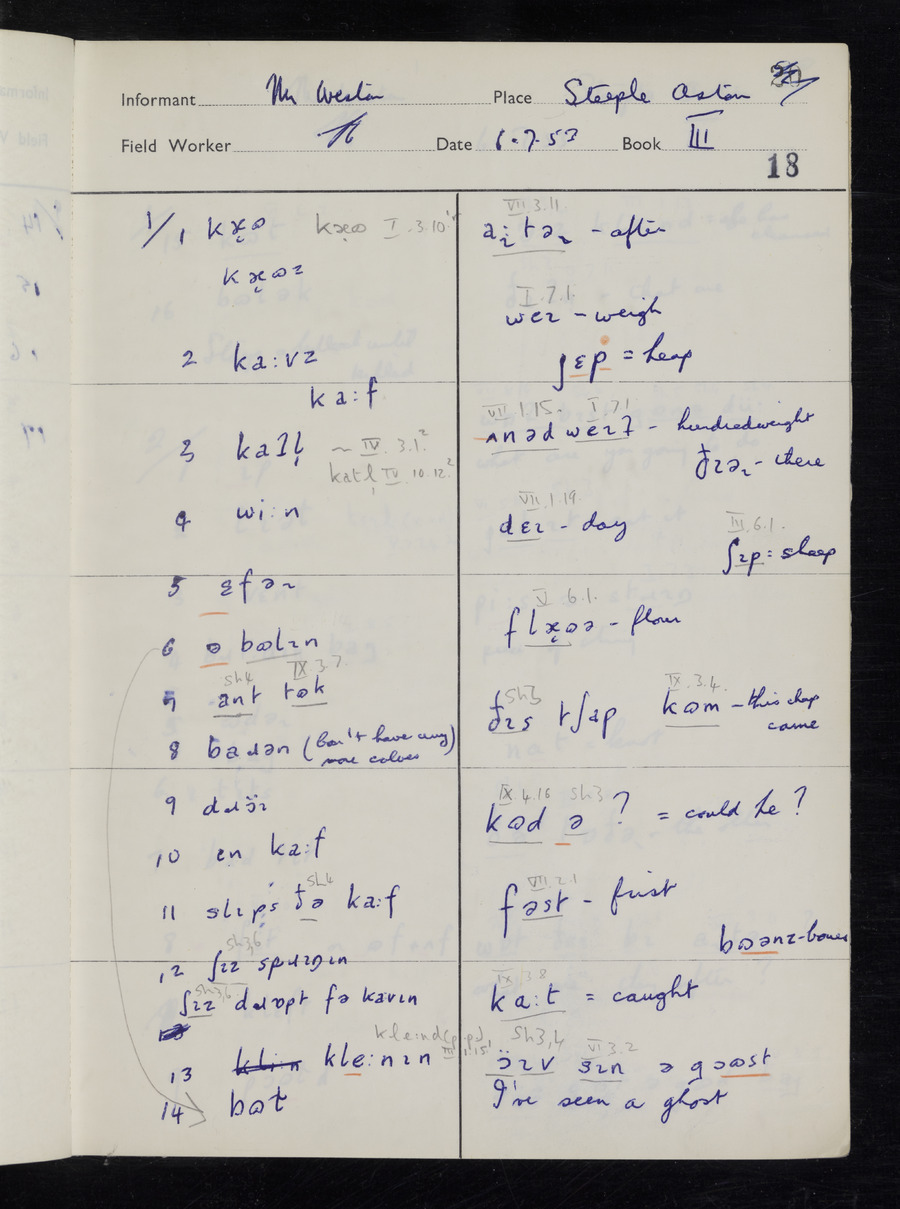 Informant Mr Weston Place Steeple Aston
Field Worker Date 6.7.53 Book III
18
1/1 kæ̞ʊ kæ̞ʊ I.3.10
kæ̞ʊz
2 ka:vz
ka:f
3 katl̩ ~ IV.3.1²
katl̩ IV.10.12²
4 wi:n
5 ɛfəɹ
6 ə bʊlɪn
sh4 IX 3.7.
7 ant tʊk
8 baɹən (ban't have any more calves)
9 dɹɔ̈ɪ
10 en ka:f
sh4
11 slɪps ðə ka:f
sh3,6
12 ʃɪz spɹɪŋɪn
sh3,6
ʃɪz dɹɒpt fə kavɪn
kle:nd (p.p.) III 1.15¹
13 kle:nɪn
14 bʊt
VII 3.11.
- after
I.7.1.
weɪ - weigh
ʃɛp = heap
VII 1.15. I.7.1
ʌnəd weɪt - hundredweight
- there
VII.1.19.
dɛɪ - day
III.6.1.
ʃɪp = sheep
V 6.1.
flæ̞ʊə - flour
sh3 IX.3.4.
ðɪs tʃap kʊm - this chap came
IX 4.16 sh3
kʊd ə ? = could he?
VII.2.1
fəst - first
bʊənz - bones
IX 3.8
ka:t = caught
sh3,4 VI 3.2
ɔ̈ɪv sɪn ə gʊəst
I've seen a ghost